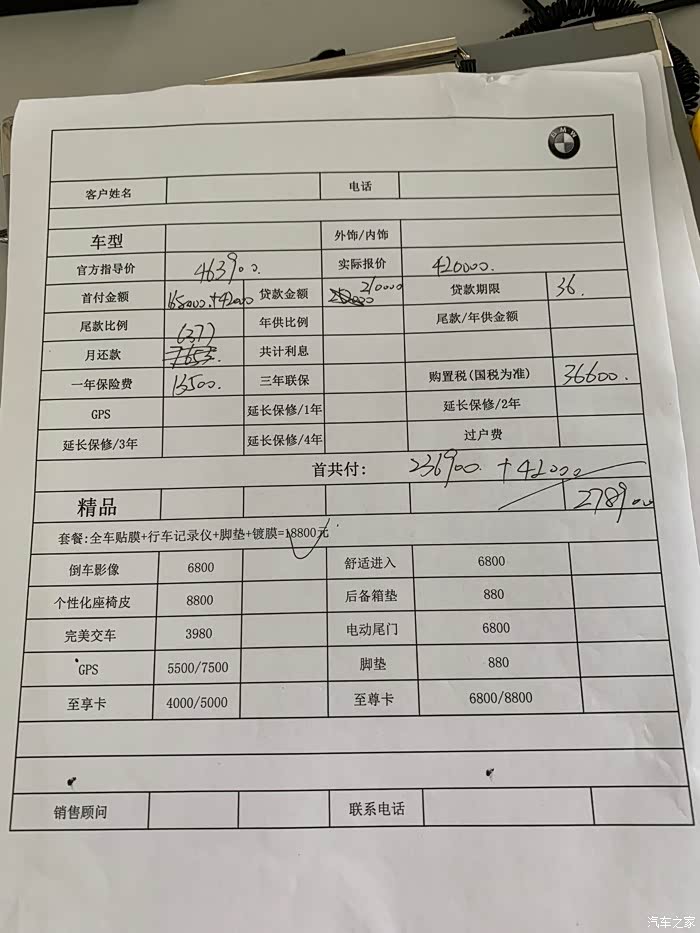 BMW
客户姓名 电话
车型 外饰/内饰
官方指导价 463900. 实际报价 420000.
首付金额 165000.+42000 贷款金额 210000 贷款期限 36.
尾款比例 年供比例 尾款/年供金额
6377
月还款 7653. 共计利息
一年保险费 13500. 三年联保 购置税(国税为准) 36600.
GPS 延长保修/1年 延长保修/2年
延长保修/3年 延长保修/4年 过户费
首共付: 236900. +42000
精品 278900
套餐:全车贴膜+行车记录仪+脚垫+镀膜=18800元
倒车影像 6800 舒适进入 6800
个性化座椅皮 8800 后备箱垫 880
完美交车 3980 电动尾门 6800
GPS 5500/7500 脚垫 880
至享卡 4000/5000 至尊卡 6800/8800
销售顾问 联系电话
汽车之家